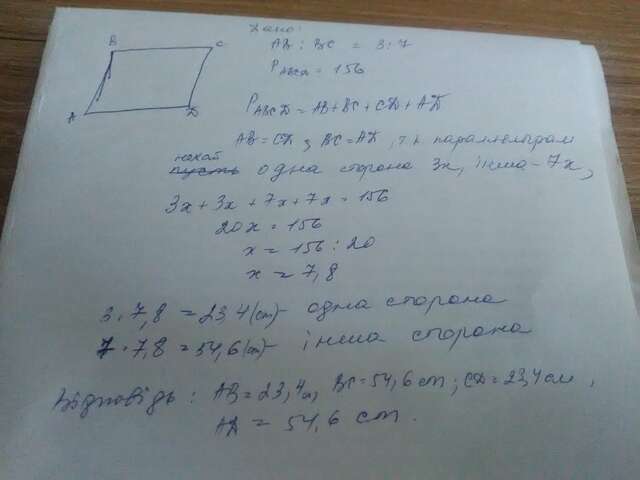 Дано:
B C
AB : BC = 3 : 7
P ABCD = 156
A D
P ABCD = AB + BC + CD + AD
AB = CD ; BC = AD , т.к паралелограм
нехай
пусть одна сторона 3x, інша - 7x,
3x + 3x + 7x + 7x = 156
20x = 156
x = 156 : 20
x = 7,8
3 · 7,8 = 23,4 (cm) - одна сторона
7 · 7,8 = 54,6 (cm) - інша сторона
Відповідь : AB = 23,4 см, BC = 54,6 cm ; CD = 23,4 см ,
AD = 54,6 cm .